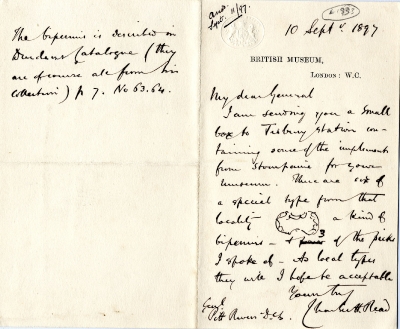 ansd
Sept. 11/97.
L 883
10 Septr. 1897
BRITISH MUSEUM,
LONDON: W.C.
My dear General
I am sending you a small
box to Tisbury Station con-
taining some of the implements
from for your
museum. There are six of
a special type from that
locality a kind of
bipennis - & 3 of the picks
I spoke of - As local types
they will I hope be acceptable
Yours truly
Charles H. Read
Genl.
Pitt Rivers - D.C.L.
The bipennis is described in
Catalogue (they
are of course all from his
collection) p 7. No 63.64.